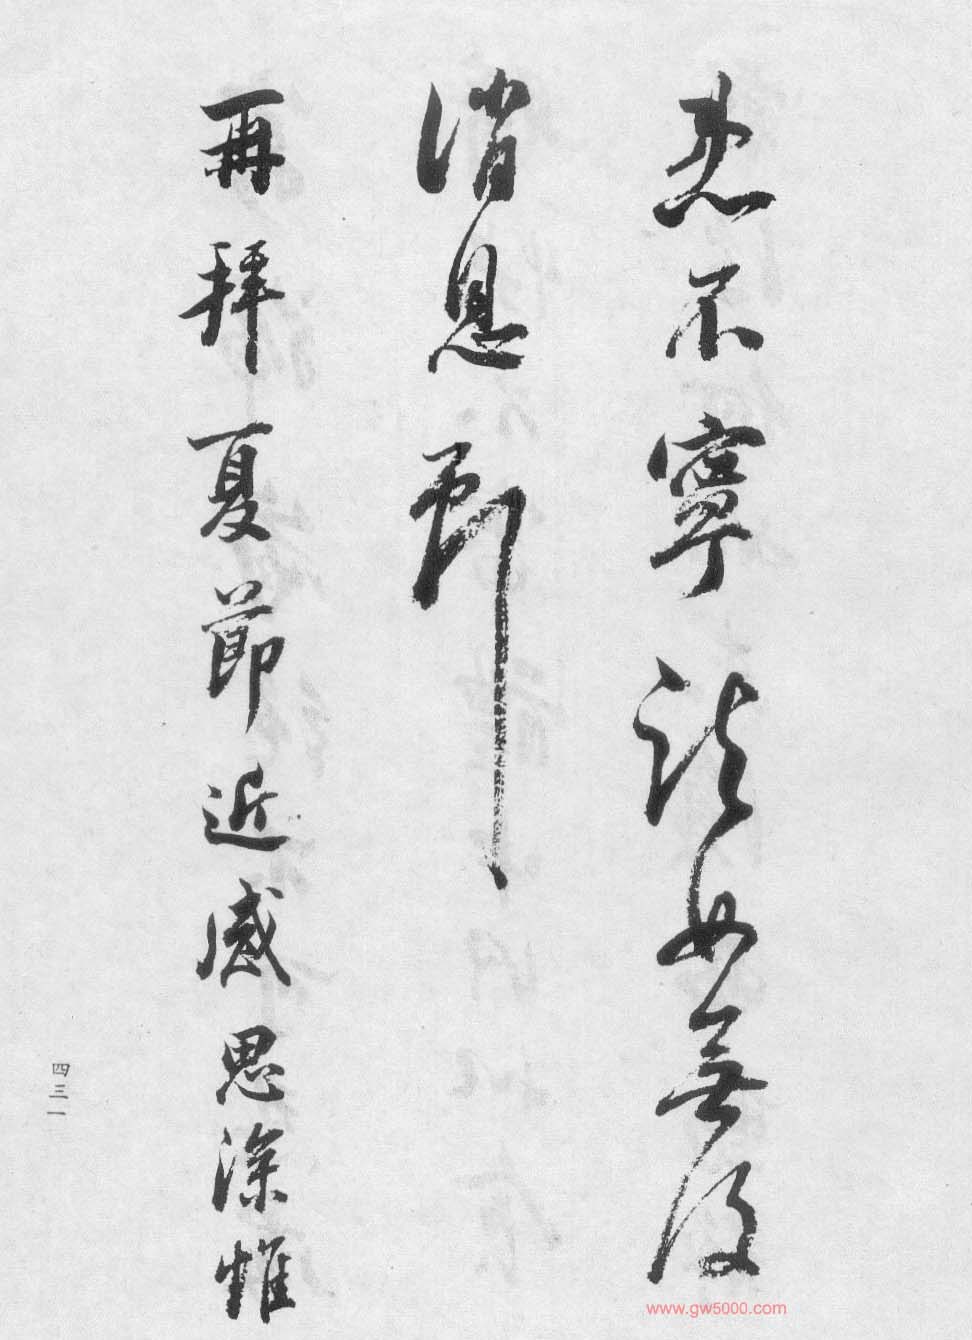 患不寧女無復
消息
再拜夏節近感思深惟
四三一
www.gw5000.com